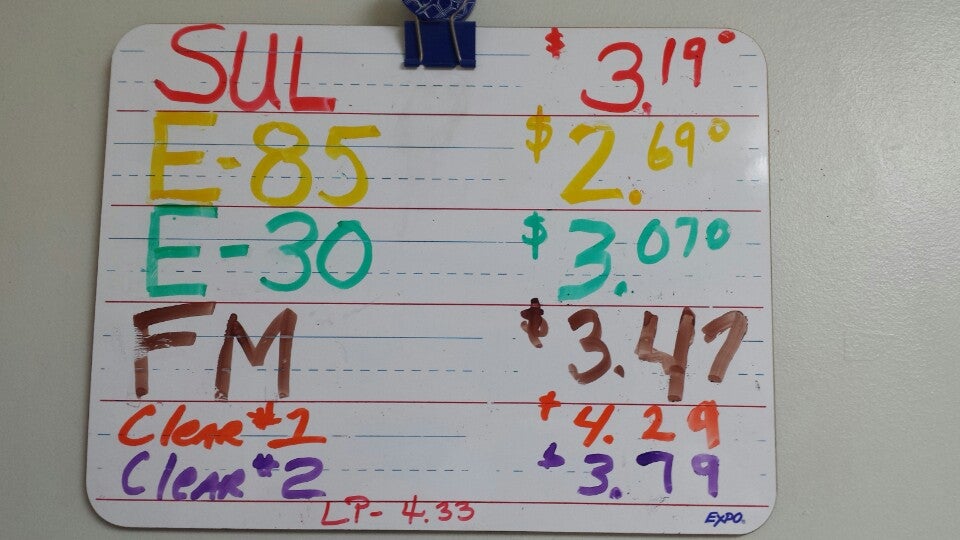 SUL $3.19°
E-85 $2.69°
E-30 $3.07°
FM $3.47
Clear #1 $4.29
Clear #2 $3.79
LP- 4.33
EXPO.